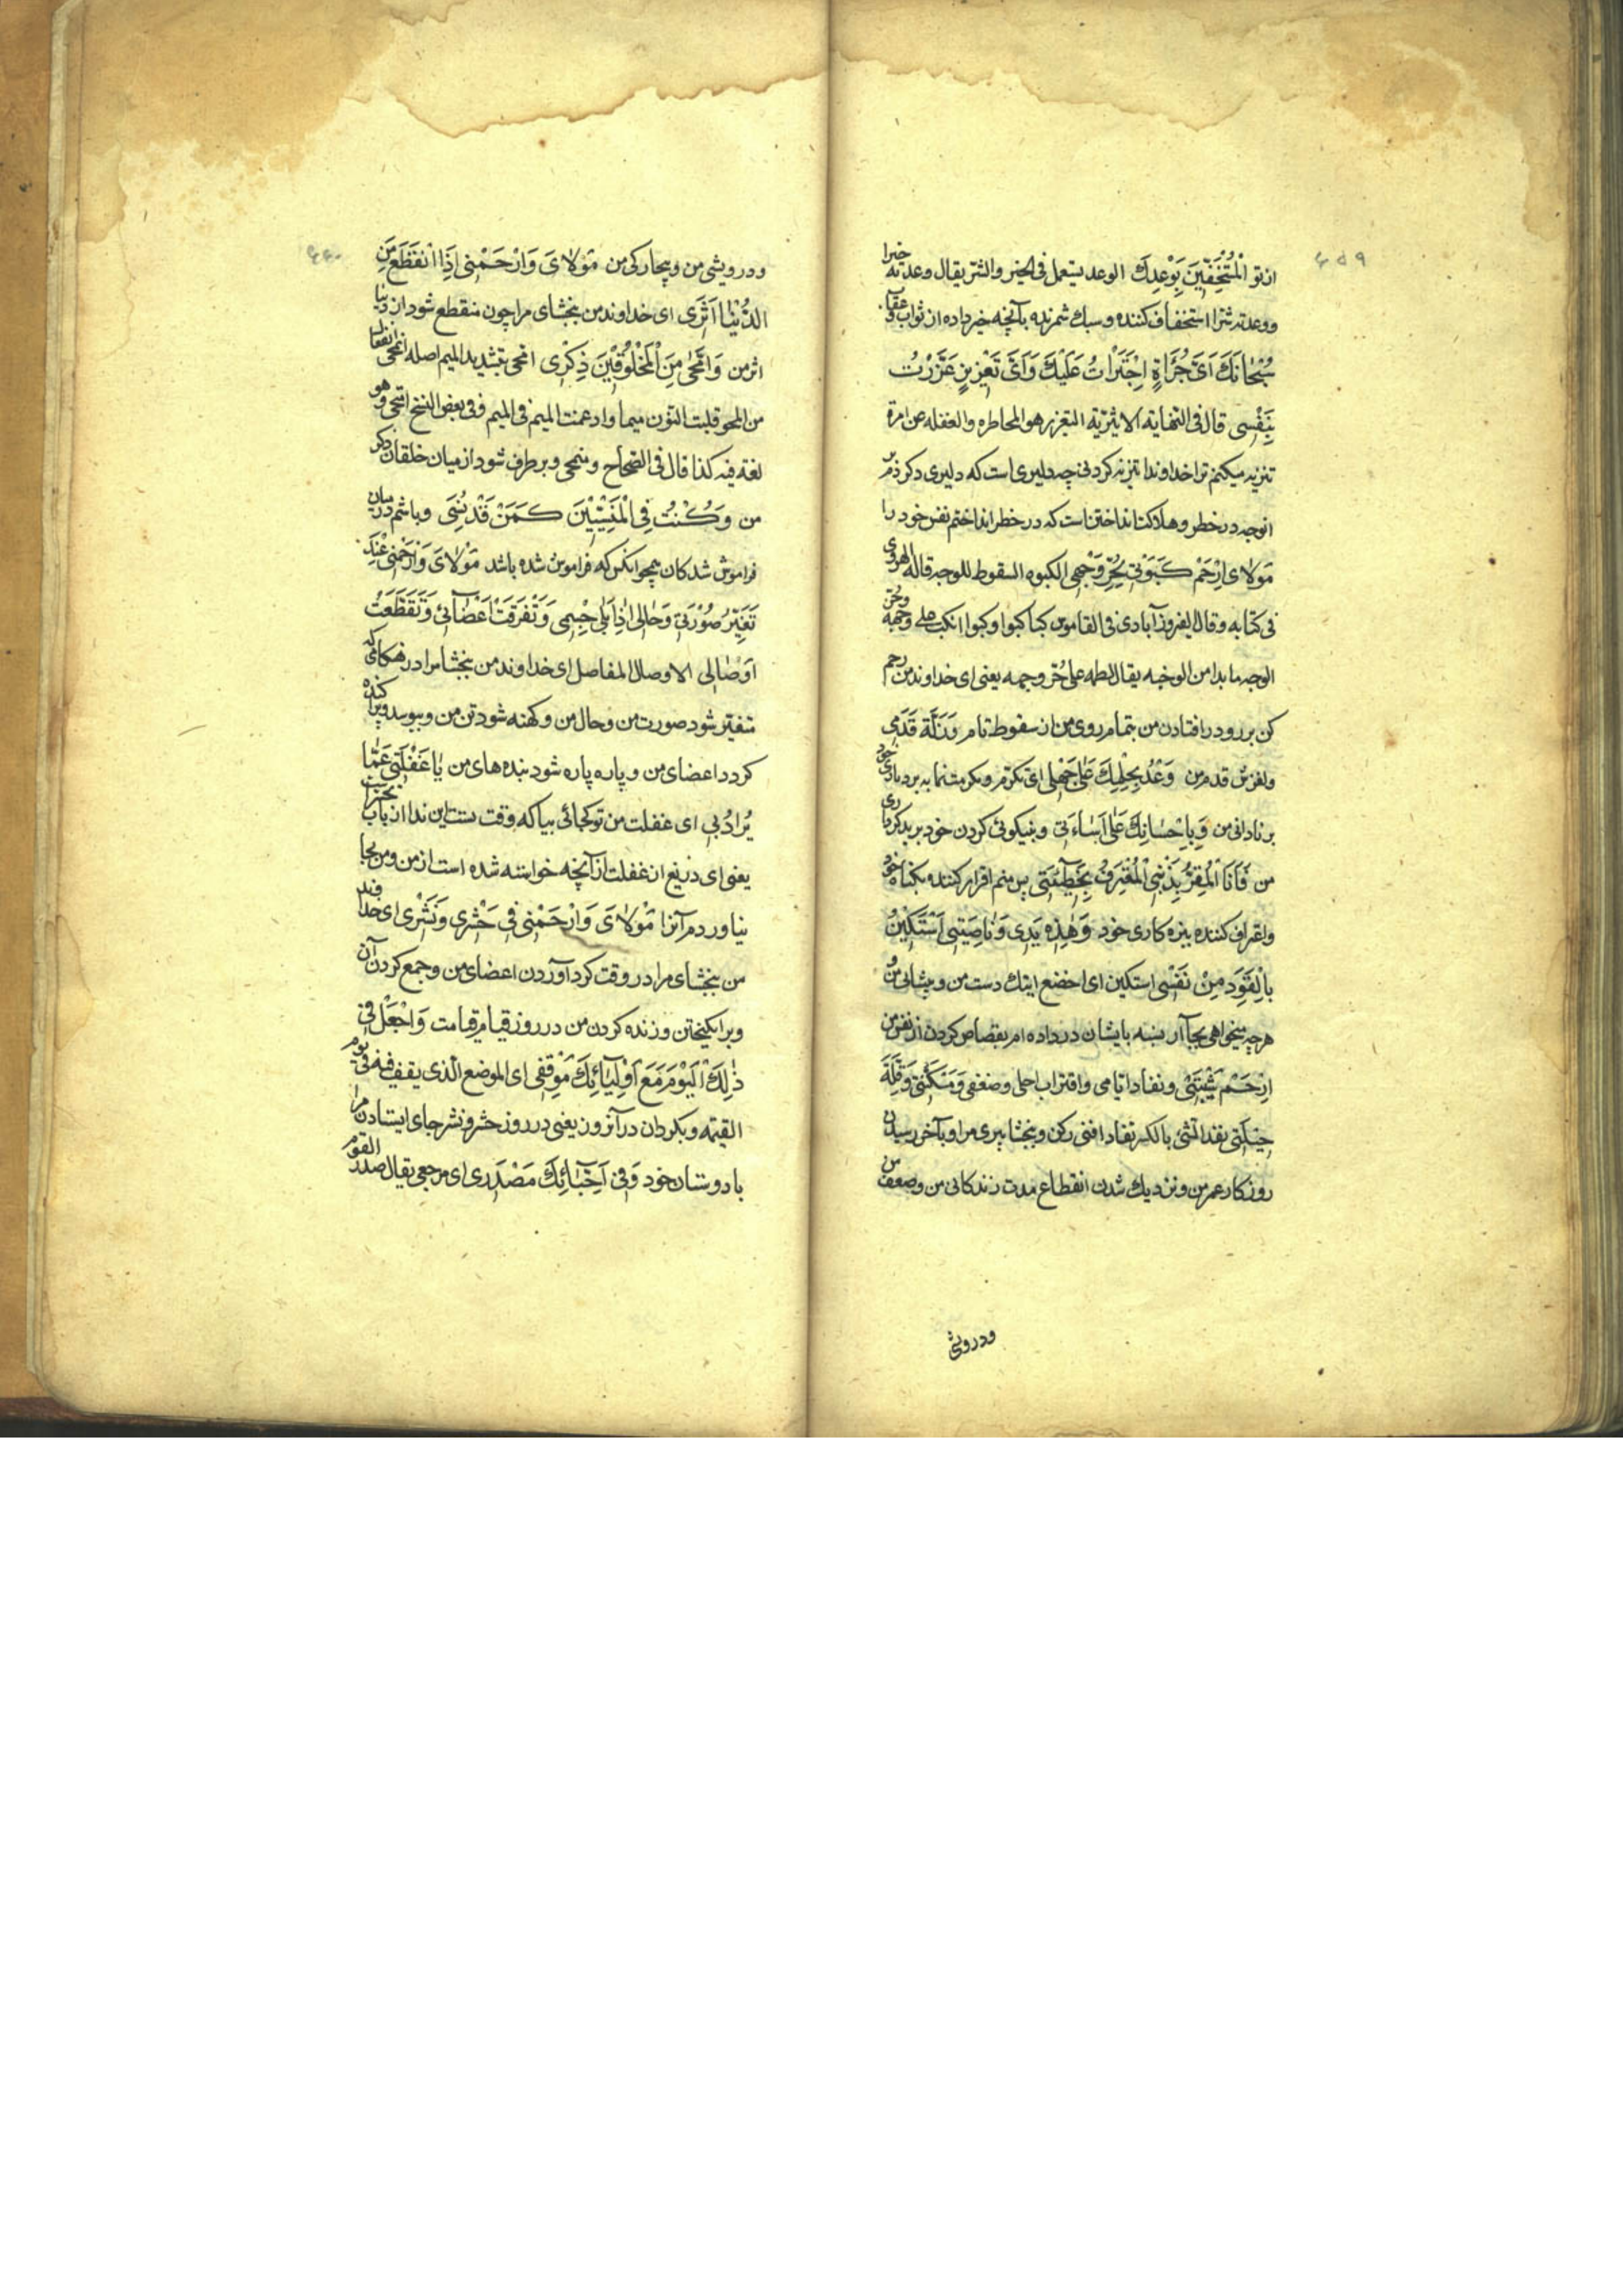 ۴۵۹
از تو الْمُسْتَخِفّينَ بِوَعْدِكَ الوعد يستعمل فى الخير والشر يقال وعدته خيرا
ووعدته شرا استخفاف كننده و سبك شمرنده بآنچه خبر داده از ثواب و عقاب
سُبْحانَكَ اَىَّ جُرْاَةٍ اِجْتَرَاْتُ عَلَيْكَ وَاَىَّ تَغْريرٍ غَرَّرْتُ
بِنَفْسى قال فى النهاية الاثيرية التغرير هو المخاطره والغفله عن امره
تنزيه ميكنم ترا خداوندا تنزيه كردنى چه دليرى است كه دليرى كردم بر
تو وچه در خطر و هلاكت انداختن است كه در خطر انداختم نفس خود را
مَولاىَ اِرْحَمْ كَبْوَتى لِحُرِّ وَجْهى الكبوه السقوط للوجه قاله الهروى
فى كتابه وقال الفيروزآبادى فى القاموس كبا كبوا وكبوا انكب على وجهه وحر
الوجه ما بدا من الوجنه يقال لطمه على حُرّ وجهه يعنى اى خداوند من رحم
كن بر رو در افتادن من بتمام روى من از سقوط تام وَزَلَّةَ قَدَمى
ولغزش قدم من وَعُدْ بِحِلْمِكَ عَلى جَهْلى اى تكرم و مكرمت نما به بردبارى خود
بر نادانى من وَبِاِحْسانِكَ عَلى اَساءَتى وبنيكوئى كردن خود بر بدكردارى
من فَاَنَا الْمُقِرُّ بِذَنْبى الْمُعْتَرِفُ بِخَطيئَتى پس منم اقرار كننده بگناه خود
واعتراف كننده ببزه كارى خود وَهذِه يَدى وَناصِيَتى اَسْتَكينُ
بِالْقَوَدِ مِنْ نَفْسى استكين اى اخضع اينك دست من و پيشانى من و
هرچه ميخواهى بجا آر بنسبه بايشان در داده ام بقصاص كردن از نفس من
اِرْحَمْ شَيْبَتى ونفاد ايامى واقتراب اجلى وضعفى وَمَسْكَنَتى وَقِلَّةَ
حيلَتى نفد الشئ بالكسر نفادا فنى ركن وببخشا پيرى مرا و بآخر رسيدن
روزكار عمر من ونزديك شدن انقطاع مدت زندكانى من وضعف من
ودرويشى
۴۶۰
ودرويشى من و بيچارگى من مَوْلاىَ وَارْحَمْنى اِذَا انْقَطَعَ مِنَ
الدُّنْيا اَثَرى اى خداوند من ببخشاى مرا چون منقطع شود از دنيا
اثر من وَامَّحى مِنَ الْمَخْلُوقينَ ذِكْرى امحى بتشديد الميم اصله انمحى انفعال
من المحو قلبت النون ميما وادغمت الميم فى الميم وفى بعض النسخ امتحى وهو
لغة فيه كذا قال فى الصحاح ومنمحى وبر طرف شود از ميان خلقان ذكر
من وَكُنْتُ فِى الْمَنْسِيّينَ كَمَنْ قَدْ نُسِىَ وباشم در ميان
فراموش شدكان همچو انكس كه فراموش شده باشد مَوْلاىَ وَارْحَمْنى عِنْدَ
تَغَيُّرِ صُورَتى وَحالى اِذا بَلِىَ جِسْمى وَتَفَرَّقَتْ اَعْضائى وَتَقَطَّعَتْ
اَوْصالى الاوصال المفاصل اى خداوند من ببخشا مرا در هنكامى كه
متغير شود صورت من وحال من وكهنه شود تن من وبپوسد وپراكنده
كردد اعضاى من وپاره پاره شود بندهاى من يا غَفْلَتى عَمّا
يُرادُ بى اى غفلت من تو كجائى بيا كه وقت تست اين ندا از باب تحسر است
يعنى اى دريغ از غفلت از آنچه خواسته شده است از من ومن بجا
نياوردم آنرا مَوْلاىَ وَارْحَمْنى فى حَشْرى وَنَشْرى اى خداوند
من ببخشاى مرا در وقت كرد آوردن اعضاى من وجمع كردن آن
وبرانكيختن وزنده كردن من در روز قيام قيامت وَاجْعَلْ فى
ذلِكَ الْيَوْمِ مَعَ اَوْلِيآئِكَ مَوْقِفى اى الموضع الّذى يقف فيه فى يوم
القيمة وبكردان در آنروز يعنى در روز حشر ونشر جاى ايستادن مرا
با دوستان خود وَفى اَحِبّائِكَ مَصْدَرى اى مرجعى يقال صدر القوم